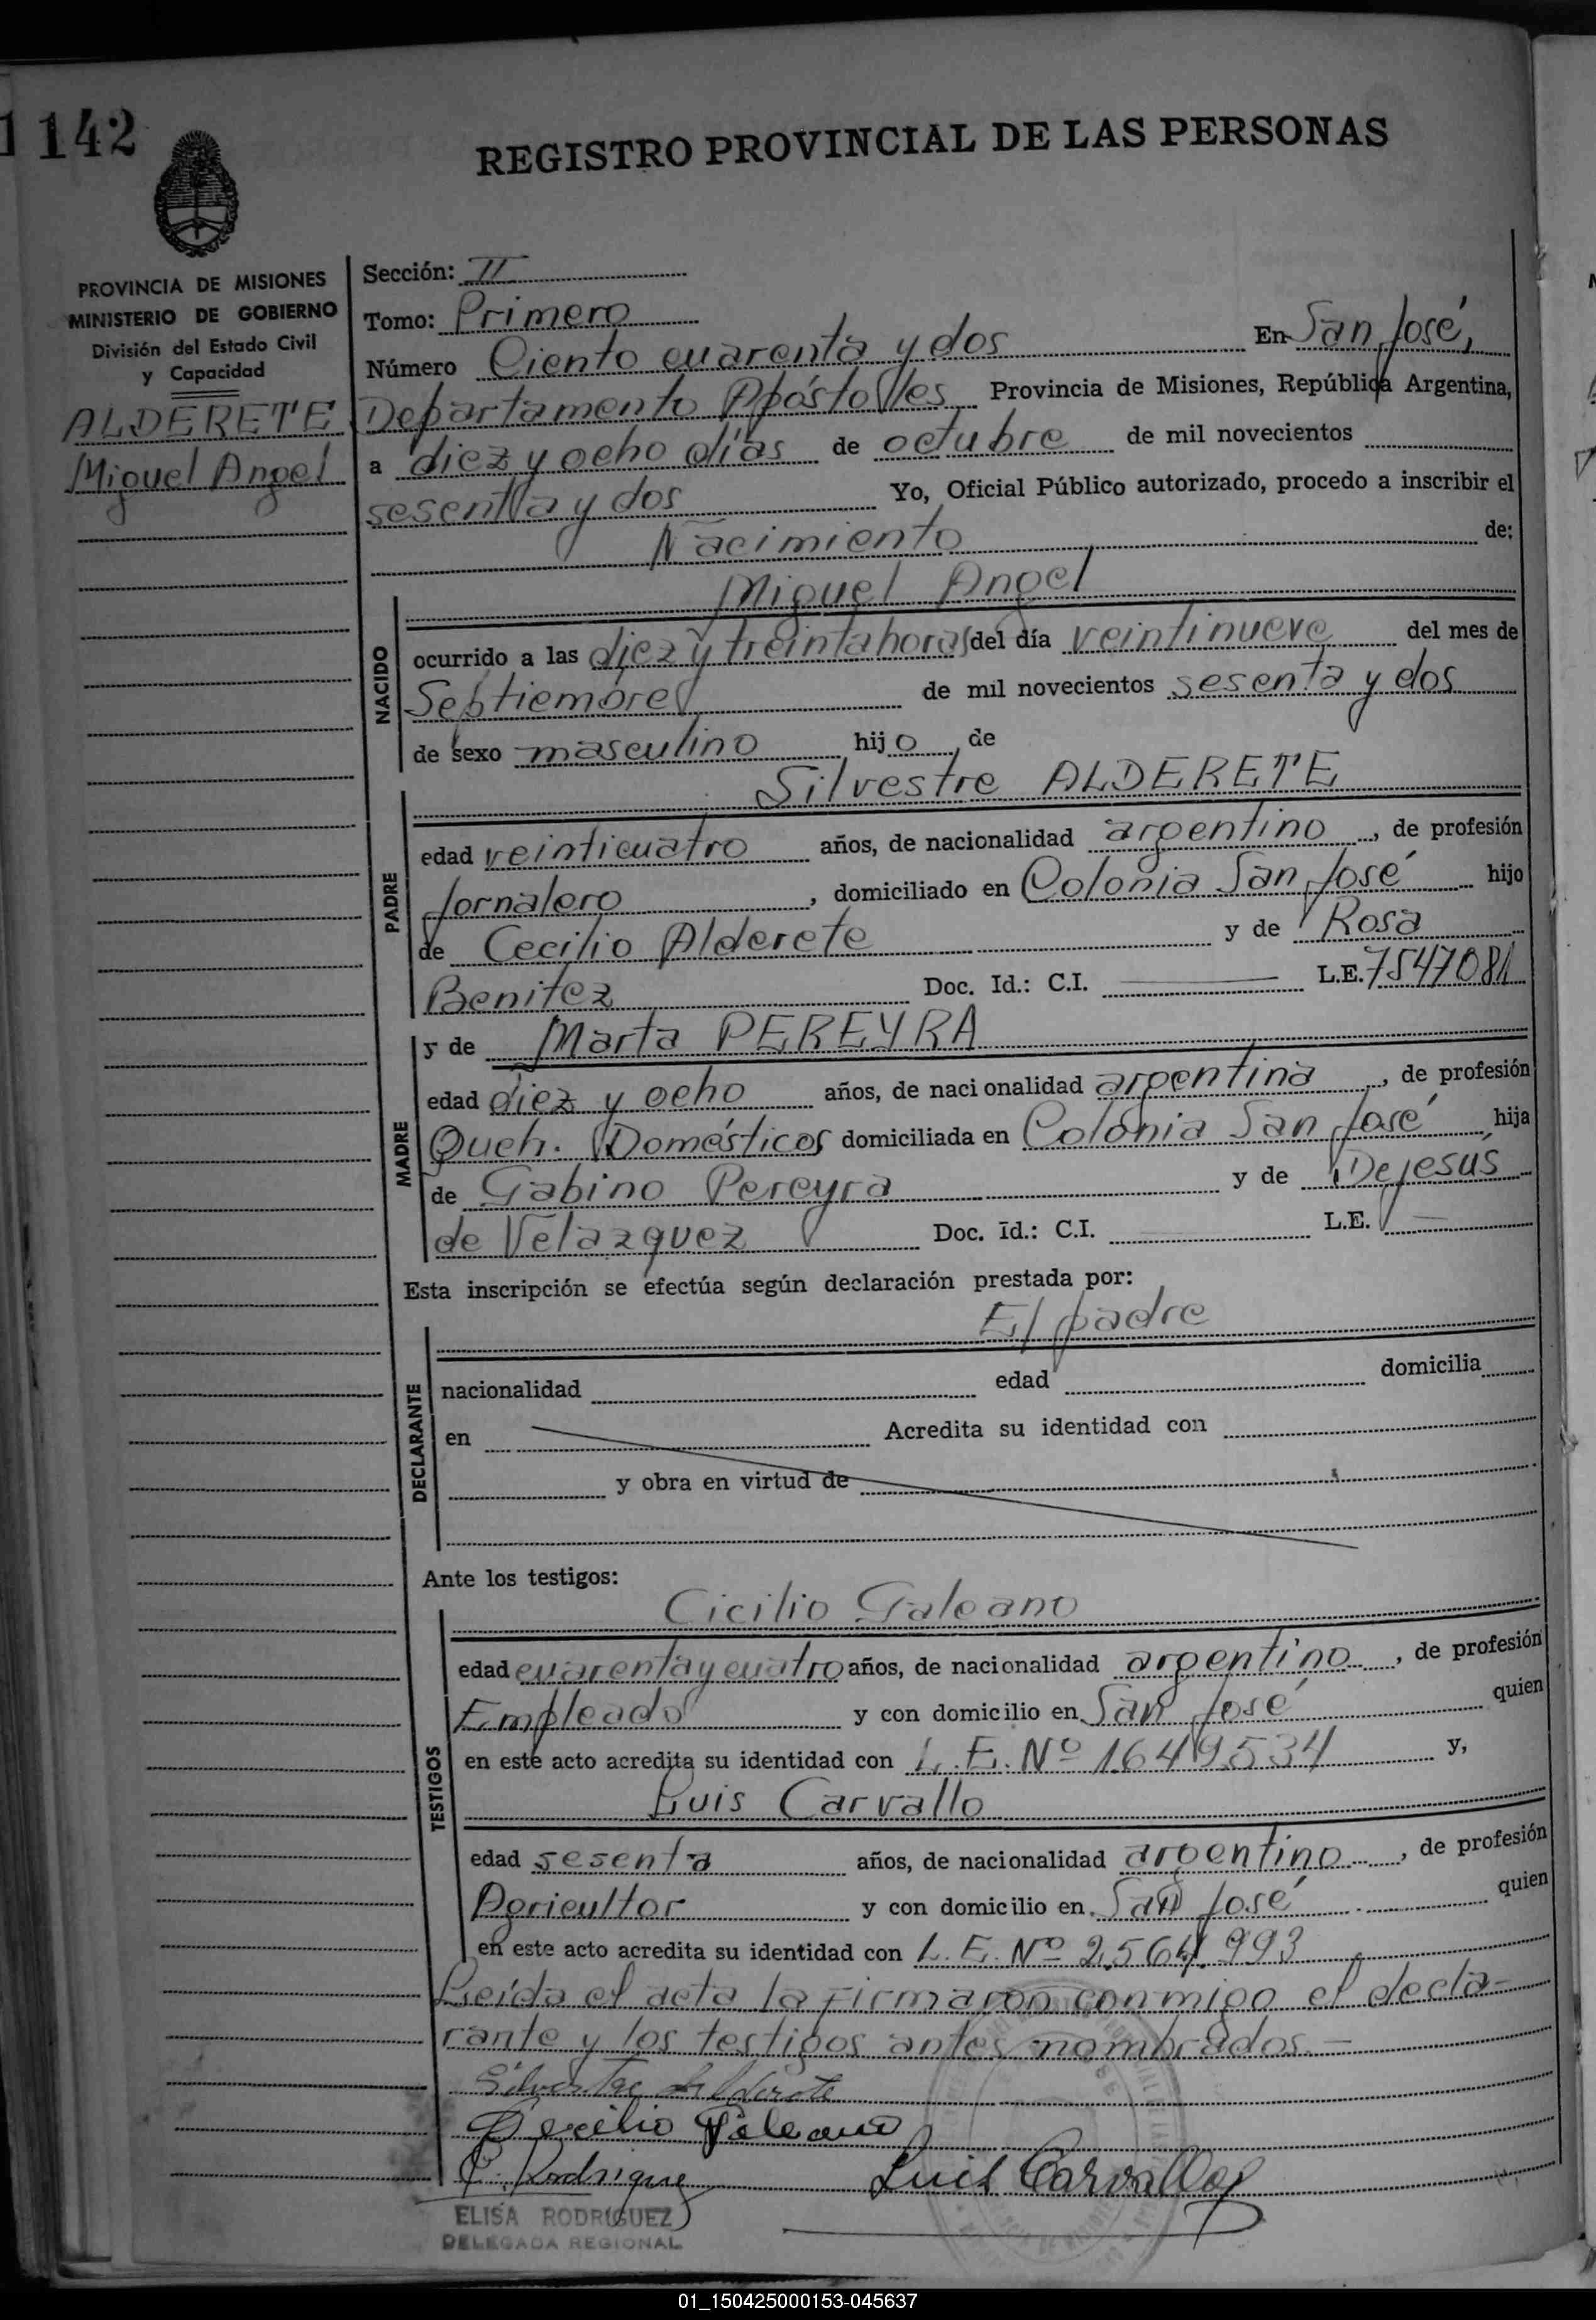 1142
REGISTRO PROVINCIAL DE LAS PERSONAS
PROVINCIA DE MISIONES
MINISTERIO DE GOBIERNO
División del Estado Civil
y Capacidad
ALDERETE
Miguel Angel
Sección: II
Tomo: Primero
Número Ciento cuarenta y dos En San José,
Departamento Apóstoles Provincia de Misiones, República Argentina,
a diez y ocho días de octubre de mil novecientos
sesenta y dos Yo, Oficial Público autorizado, procedo a inscribir el
Nacimiento de:
Miguel Angel
NACIDO
ocurrido a las diez y treinta horas del día veintinueve del mes de
Septiembre de mil novecientos sesenta y dos
de sexo masculino hijo de
Silvestre ALDERETE
PADRE
edad veinticuatro años, de nacionalidad argentino, de profesión
Jornalero, domiciliado en Colonia San José hijo
de Cecilio Alderete y de Rosa
Benitez Doc. Id.: C.I. L.E. 7547081
MADRE
y de Marta PEREYRA
edad diez y ocho años, de nacionalidad argentina, de profesión
Queh. Domésticos domiciliada en Colonia San José hija
de Gabino Pereyra y de Dejesús
de Velazquez Doc. Id.: C.I. L.E. —
Esta inscripción se efectúa según declaración prestada por:
El padre
DECLARANTE
nacionalidad edad domicilia
en Acredita su identidad con
y obra en virtud de
Ante los testigos:
Cicilio Galeano
TESTIGOS
edad cuarenta y cuatro años, de nacionalidad argentino, de profesión
Empleado y con domicilio en San José quien
en este acto acredita su identidad con L.E. Nº 1649534 y,
Luis Carvallo
edad sesenta años, de nacionalidad argentino, de profesión
Agricultor y con domicilio en San José quien
en este acto acredita su identidad con L.E. Nº 2.564.993
Leída el acta la firmaron conmigo el decla-
rante y los testigos antes nombrados.—
Silvestre Alderete
Cecilio Galeano
E. Rodriguez Luis Carvallo
ELISA RODRIGUEZ
DELEGADA REGIONAL
01_150425000153-045637